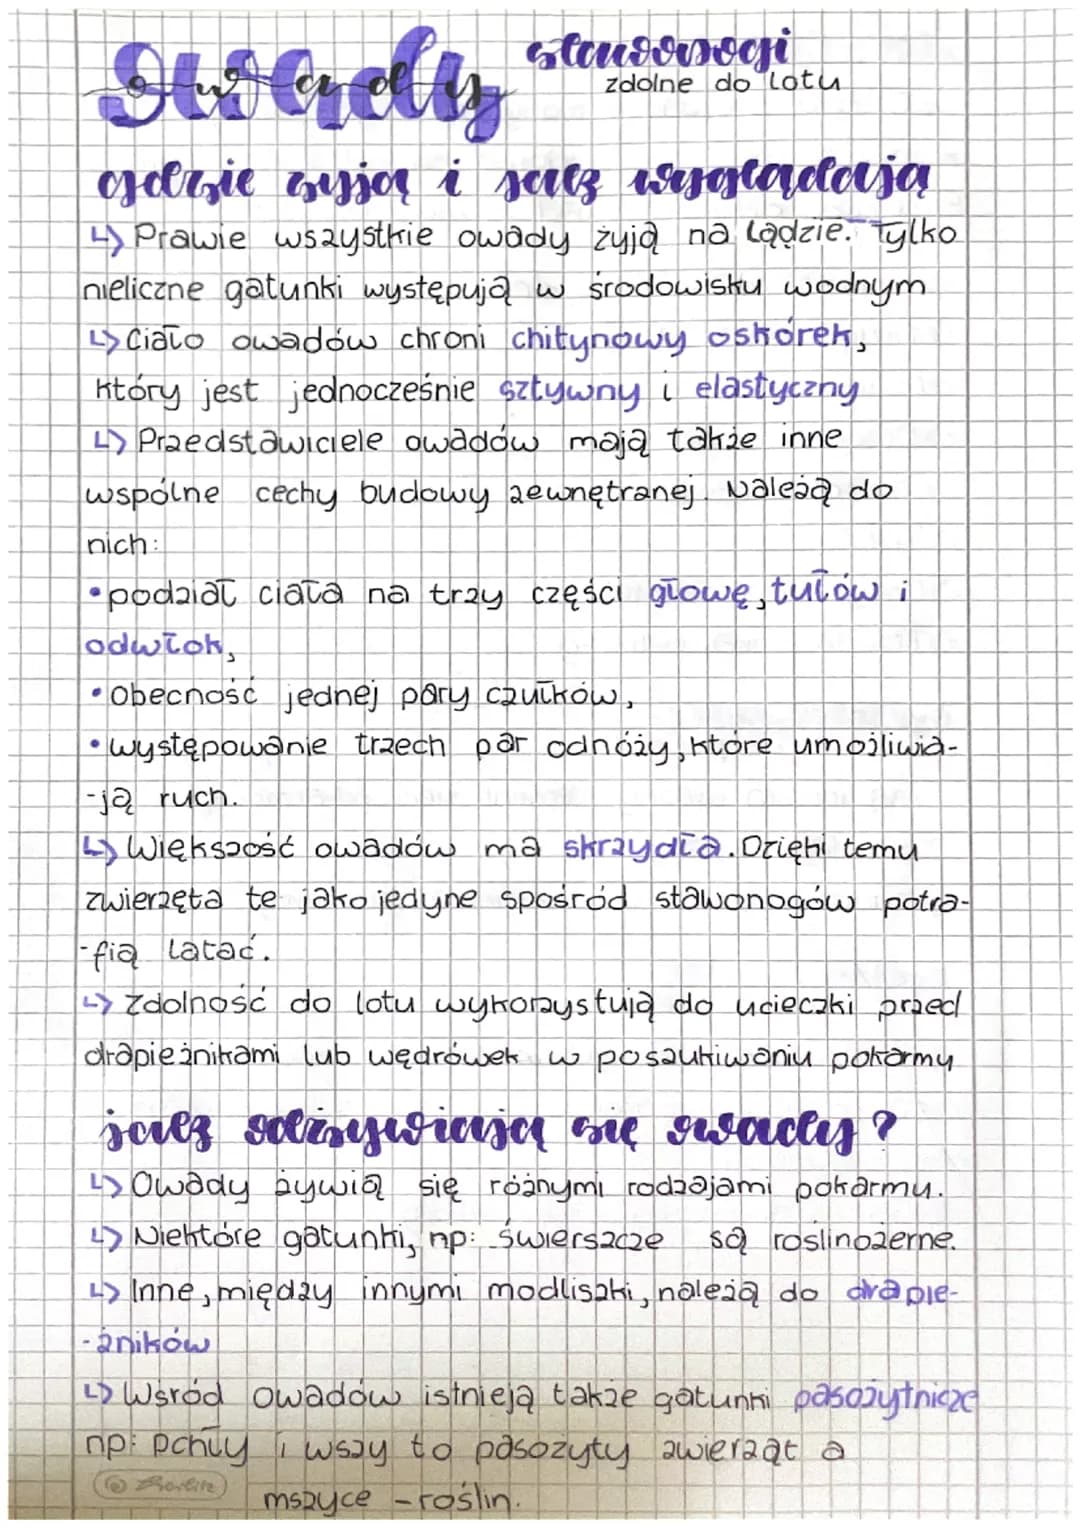 owady stawonogi
zdolne do lotu
gdzie żyją i jak wyglądają
↳ Prawie wszystkie owady żyją na lądzie. Tylko
nieliczne gatunki występują w środowisku wodnym
↳ Ciało owadów chroni chitynowy oskórek,
który jest jednocześnie sztywny i elastyczny
↳ Przedstawiciele owadów mają także inne
wspólne cechy budowy zewnętrznej. Należą do
nich:
• podział ciała na trzy części głowę, tułów i
odwłok,
• Obecność jednej pary czułków,
• występowanie trzech par odnóży, które umożliwia-
-ją ruch.
↳ Większość owadów ma skrzydła. Dzięki temu
zwierzęta te jako jedyne spośród stawonogów potra-
-fią latać.
↳ Zdolność do lotu wykorzystują do ucieczki przed
drapieżnikami lub wędrówek w poszukiwaniu pokarmu
jak odżywiają się owady?
↳ Owady żywią się różnymi rodzajami pokarmu.
↳ Niektóre gatunki, np: świerszcze są roślinożerne.
↳ Inne, między innymi modliszki, należą do drapie-
-żników
↳ Wśród owadów istnieją także gatunki pasożytnicze
np: pchły i wszy to pasożyty zwierząt a
mszyce - roślin.